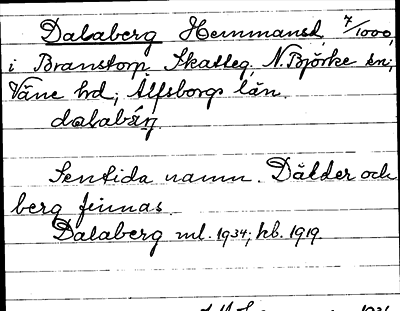 Dalaberg Hemmansd. 7/1000,
i Branstorp Skatteg. N. Björke sn;
Väne hd; Älfsborgs län.
dalabärj.
Sentida namn. Dälder och
berg finnas.
Dalaberg ml. 1934; kb. 1919.